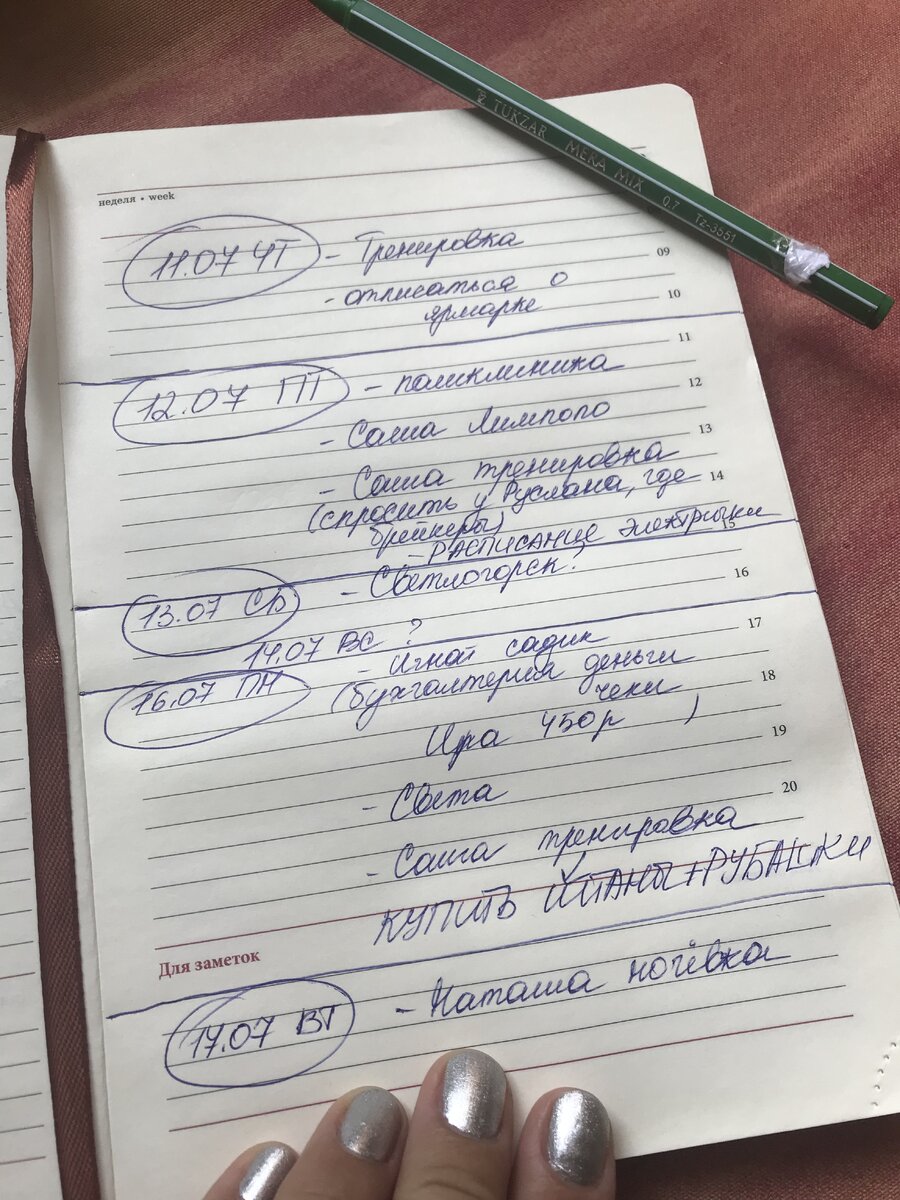 TUKZAR MEKA MIX 0.7 TZ-3551
неделя • week
11.07 ЧТ - Тренировка
09
- отписаться о
10
ярмарке
11
12.07 ПТ - поликлиника
12
- Саша Лимпопо
13
- Саша тренировка
(спросить у Руслана, где
14
брейкеры)
- РАСПИСАНИЕ электрички
15
13.07 СБ - Светлогорск?
16
14.07 ВС ?
17
16.07 ПН - Игнат садик
(бухгалтерия деньги
18
чеки
Ира 450р )
19
- Света
20
- Саша тренировка
КУПИТЬ ШТАНЫ+РУБАШКИ
Для заметок
17.07 ВТ - Наташа ночёвка